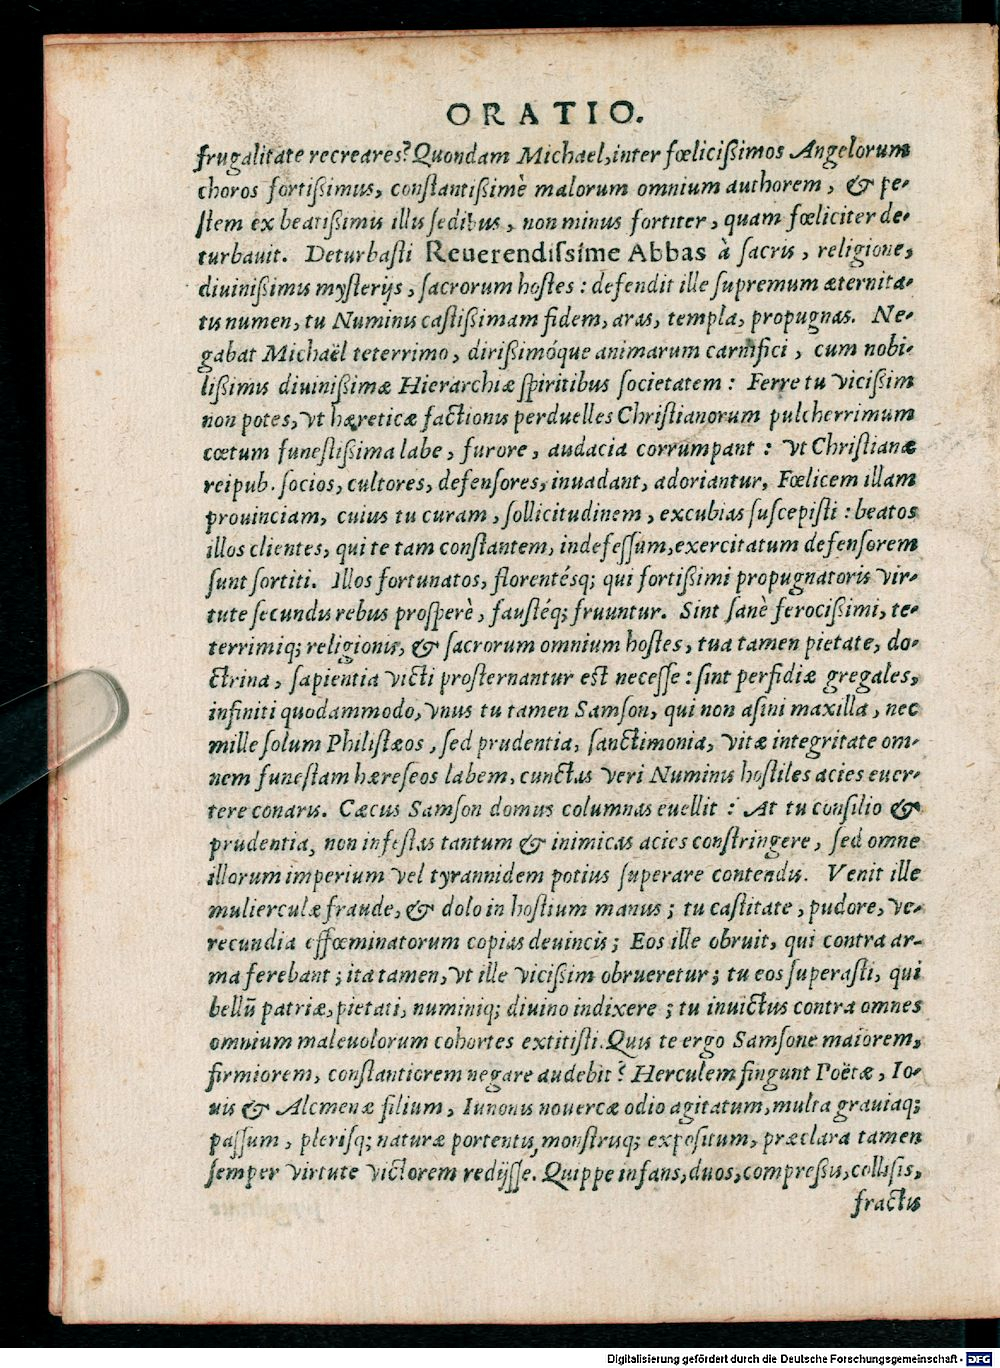 ORATIO.
frugalitate recreares? Quondam Michael, inter fœlicißimos Angelorum
choros fortißimus, constantißimè malorum omnium authorem, & pe-
stem ex beatißimis illis sedibus, non minus fortiter, quam fœliciter de-
turbauit. Deturbasti Reuerendissime Abbas à sacris, religione,
diuinißimis mysterijs, sacrorum hostes: defendit ille supremum æternita-
tis numen, tu Numinis castißimam fidem, aras, templa, propugnas. Ne-
gabat Michaël teterrimo, dirißimóque animarum carnifici, cum nobi-
lißimis diuinißimæ Hierarchiæ spiritibus societatem: Ferre tu vicißim
non potes, vt hæreticæ factionis perduelles Christianorum pulcherrimum
cœtum funestißima labe, furore, audacia corrumpant: vt Christianæ
reipub. socios, cultores, defensores, inuadant, adoriantur, Fœlicem illam
prouinciam, cuius tu curam, sollicitudinem, excubias suscepisti: beatos
illos clientes, qui te tam constantem, indefessum, exercitatum defensorem
sunt sortiti. Illos fortunatos, florentésq; qui fortißimi propugnatoris vir-
tute secundis rebus prosperè, faustéq; fruuntur. Sint sanè ferocißimi, te-
terrimiq; religionis, & sacrorum omnium hostes, tua tamen pietate, do-
ctrina, sapientia victi prosternantur est necesse: sint perfidiæ gregales,
infiniti quodammodo, vnus tu tamen Samson, qui non asini maxilla, nec
mille solum Philistæos, sed prudentia, sanctimonia, vitæ integritate om-
nem funestam hæreseos labem, cunctas veri Numinis hostiles acies euer-
tere conaris. Cæcus Samson domus columnas euellit: At tu consilio &
prudentia, non infestas tantum & inimicas acies constringere, sed omne
illorum imperium vel tyrannidem potius superare contendis. Venit ille
mulierculæ fraude, & dolo in hostium manus; tu castitate, pudore, ve-
recundia effœminatorum copias deuincis; Eos ille obruit, qui contra ar-
ma ferebant; ita tamen, vt ille vicißim obrueretur; tu eos superasti, qui
bellũ patriæ, pietati, numiniq; diuino indixere; tu inuictus contra omnes
omnium maleuolorum cohortes extitisti. Quis te ergo Samsone maiorem,
firmiorem, constantiorem negare audebit? Herculem fingunt Poëtæ, Io-
uis & Alcmenæ filium, Iunonis nouercæ odio agitatum, multa grauiaq;
passum, plerisq; naturæ portentis, monstrisq; expositum, præclara tamen
semper virtute victorem redijsse. Quippe infans, duos, compressis, collisis,
fractis
Digitalisierung gefördert durch die Deutsche Forschungsgemeinschaft - DFG